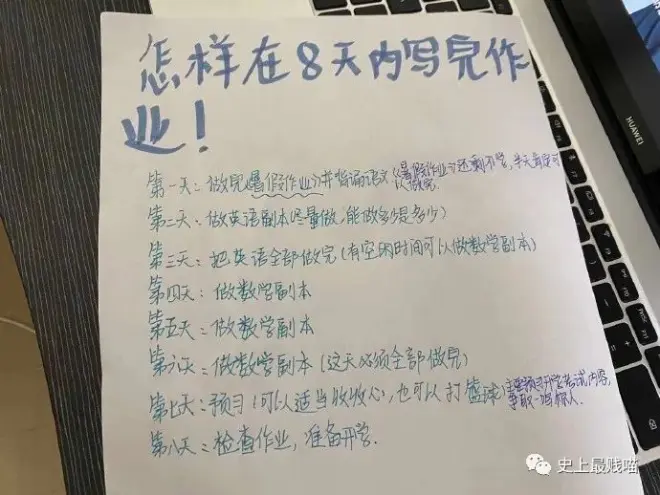 怎样在8天内写完作
业！
第一天：做完《暑假作业》并背诵语文(《暑假作业》还剩不多,半天最定可
以做完)
第二天：做英语副本(尽量做,能做多少是多少)
第三天：把英语全部做完(有空闲时间可以做数学副本)
第四天：做数学副本
第五天：做数学副本
第六天：做数学副本(这天必须全部做完)
第七天：预习(可以适当收收心),也可以打篮球(主要预习开学考试内容,
争取一鸣惊人.
第八天：检查作业，准备开学.
HUAWEI
史上最贱喵